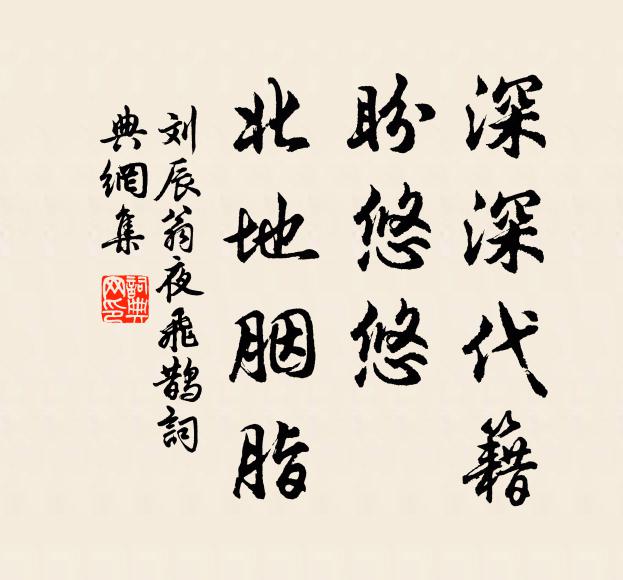 深深代籍
盼悠悠
北地胭脂
刘辰翁夜飛鹊詞
典網集
詞典
网印